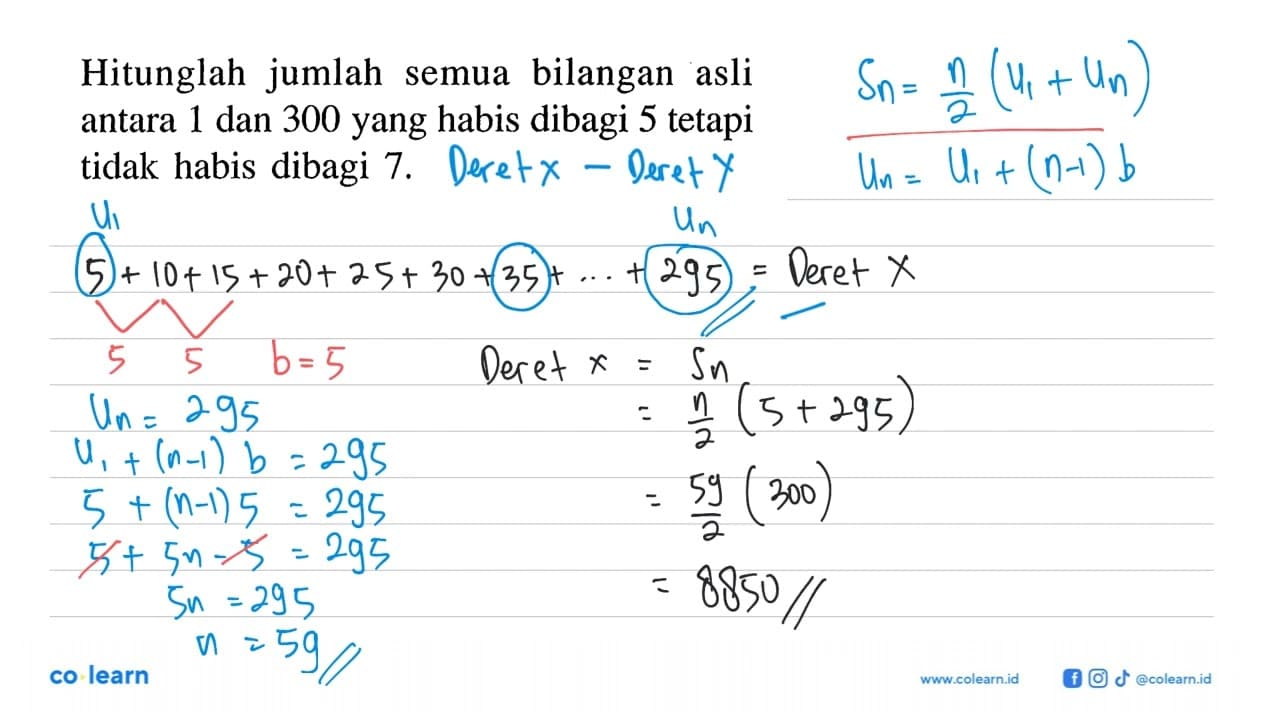 Hitunglah jumlah semua bilangan asli
antara 1 dan 300 yang habis dibagi 5 tetapi
tidak habis dibagi 7. Deret x - Deret y
Sn = n/2 (U1 + Un)
Un = U1 + (n-1) b
U1 Un
5 + 10 + 15 + 20 + 25 + 30 + 35 + ... + 295 = Deret X
5 5 b = 5
Un = 295
U1 + (n-1) b = 295
5 + (n-1) 5 = 295
5 + 5n - 5 = 295
5n = 295
n = 59
Deret x = Sn
= n/2 (5 + 295)
= 59/2 (300)
= 8850
co learn
www.colearn.id
@colearn.id